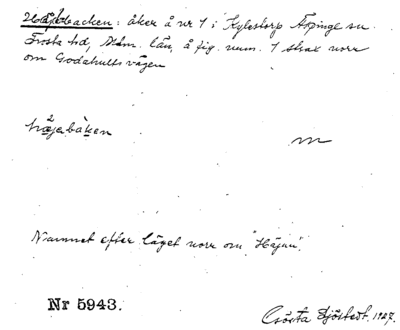 backen: åker å nr 1 i Kylestorp Äspinge sn
Frosta hd, Mlm. län, å fig. num. 1 strax norr
om Godahultsvägen
håjabakən
m
Namnet efter läget norr om "Höjan".
Nr 5943.
Gösta Sjöstedt. 1927.